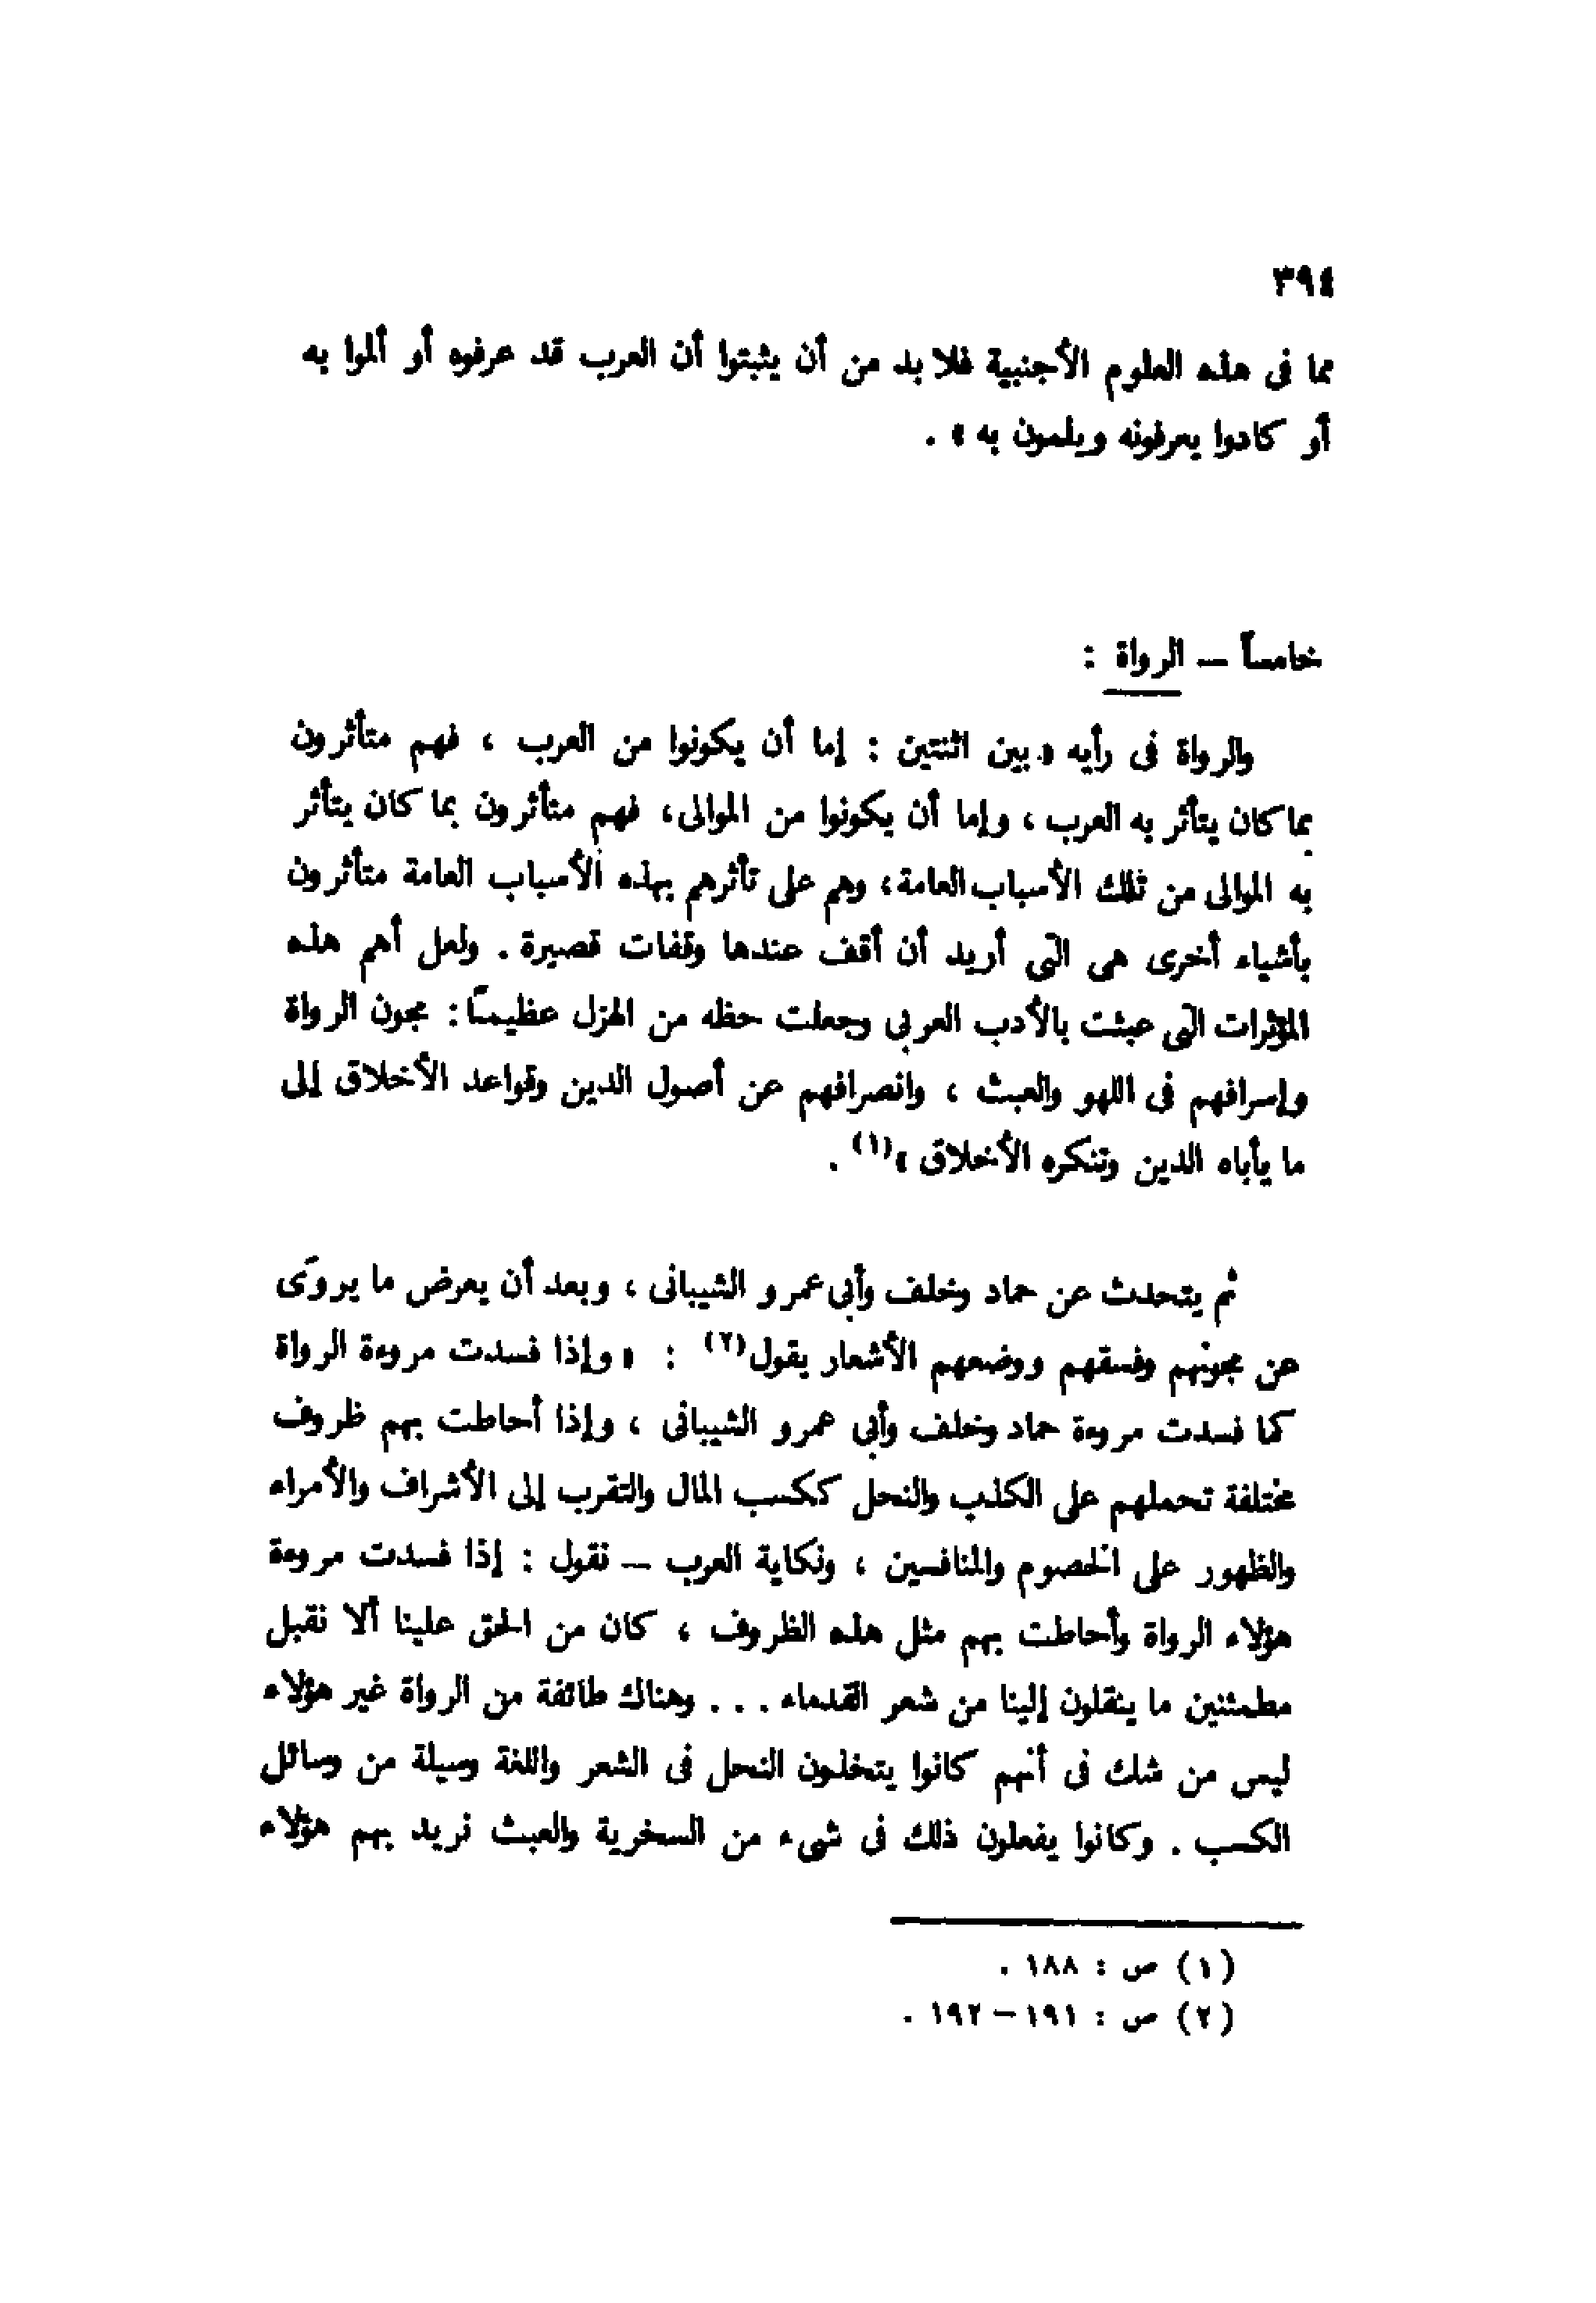 ٣٩٤
مما فى هذه العلوم الأجنبية فلا بد من أن يثبتوا أن العرب قد عرفوه أو ألموا به
أو كادوا يعرفونه ويلمون به » .
خامساً – الرواة :
والرواة فى رأيه « بين اثنتين : إما أن يكونوا من العرب ، فهم متأثرون
بما كان يتأثر به العرب ، وإما أن يكونوا من الموالى، فهم متأثرون بما كان يتأثر
به الموالى من تلك الأسباب العامة، وهم على تأثرهم بهذه الأسباب العامة متأثرون
بأشياء أخرى هى التى أريد أن أقف عندها وقفات قصيرة . ولعل أهم هذه
المؤثرات التى عبثت بالأدب العربى وجعلت حظه من الهزل عظيماً : مجون الرواة
وإسرافهم فى اللهو والعبث ، وانصرافهم عن أصول الدين وقواعد الأخلاق إلى
ما يأباه الدين وتنكره الأخلاق »(١) .
ثم يتحدث عن حماد وخلف وأبى عمرو الشيبانى ، وبعد أن يعرض ما يروَى
عن مجونهم وفسقهم ووضعهم الأشعار يقول(٢) : « وإذا فسدت مروءة الرواة
كما فسدت مروءة حماد وخلف وأبى عمرو الشيبانى ، وإذا أحاطت بهم ظروف
مختلفة تحملهم على الكذب والنحل ككسب المال والتقرب إلى الأشراف والأمراء
والظهور على الخصوم والمنافسين ، ونكاية العرب – نقول : إذا فسدت مروءة
هؤلاء الرواة وأحاطت بهم مثل هذه الظروف ، كان من الحق علينا ألا نقبل
مطمئنين ما ينقلون إلينا من شعر القدماء . . . وهناك طائفة من الرواة غير هؤلاء
ليس من شك فى أنهم كانوا يتخذون النحل فى الشعر واللغة وسيلة من وسائل
الكسب . وكانوا يفعلون ذلك فى شىء من السخرية والعبث نريد بهم هؤلاء
(١) ص : ١٨٨ .
(٢) ص : ١٩١ – ١٩٢ .